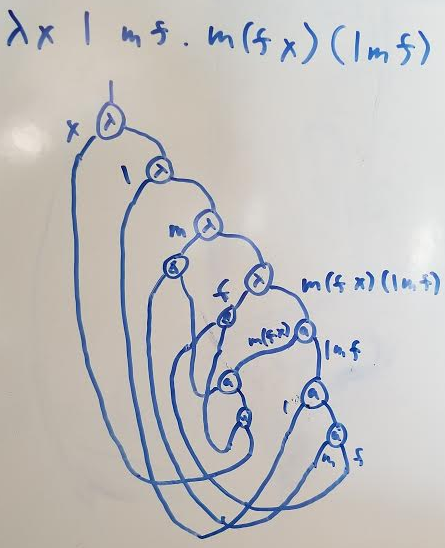 λx l m f . m(f x)(l m f)
λ
x
λ
l
λ
m
λ
f
m(f x)(l m f)
a
m(f x)
a
l m f
a
a
l
a
a
m f